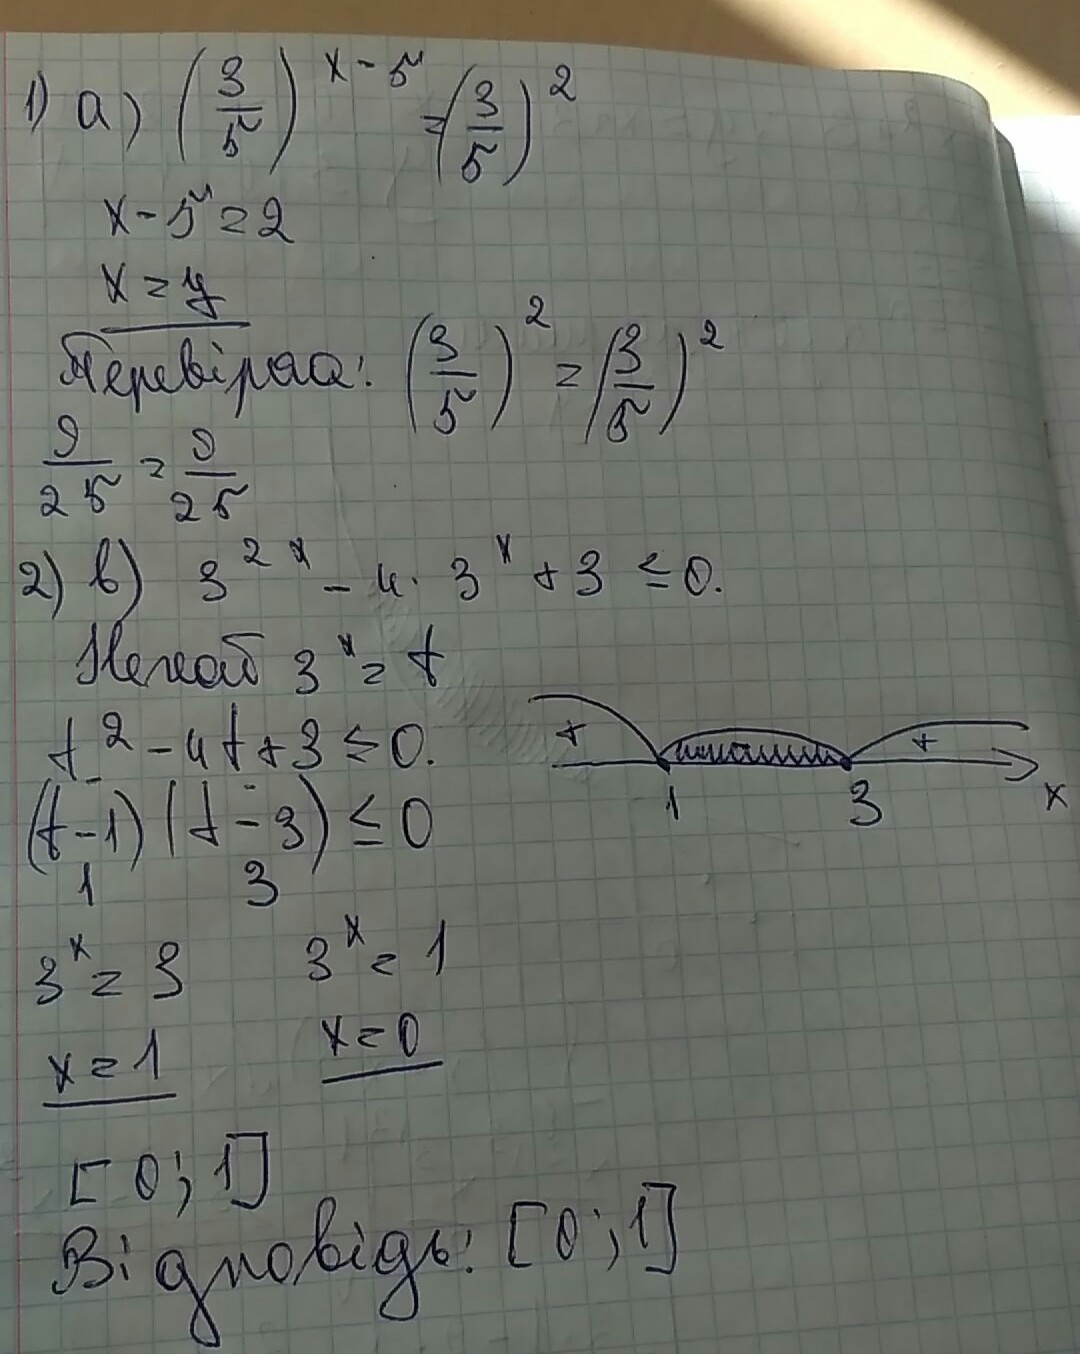 1) а) (3/5)^(x-5) = (3/5)^2
x-5=2
x=7
Перевірка: (3/5)^2 = (3/5)^2
9/25 = 9/25
2) в) 3^(2x) - 4·3^x + 3 ≤ 0.
Нехай 3^x = t
t^2 - 4t + 3 ≤ 0.
(t-1)(t-3) ≤ 0
1 3
+ +
1 3 x
3^x = 3 3^x = 1
x=1 x=0
[0;1]
Відповідь: [0;1]